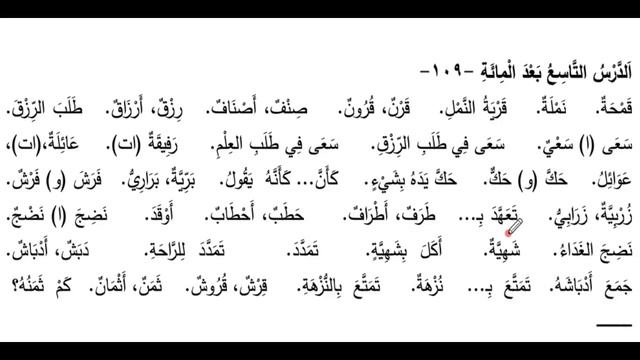 اَلدَّرْسُ التَّاسِعُ بَعْدَ الْمِائَةِ -١٠٩-
قَمْحَةٌ. نَمْلَةٌ. قَرْيَةُ النَّمْلِ. قَرْنٌ، قُرُونٌ. صِنْفٌ، أَصْنَافٌ. رِزْقٌ، أَرْزَاقٌ. طَلَبَ الرِّزْقَ.
سَعَى (ا) سَعْيٌ. سَعَى فِي طَلَبِ الرِّزْقِ. سَعَى فِي طَلَبِ العِلْمِ. رَفِيقَةٌ (ات). عَائِلَةٌ،(ات)،
عَوَائِلُ. حَكَّ (و) حَكٌّ. حَكَّ يَدَهُ بِشَيْءٍ. كَأَنَّ... كَأَنَّهُ يَقُولُ. بَرِّيَّةٌ، بَرَارِيُّ. فَرَشَ (و) فَرْشٌ.
زُرْبِيَّةٌ، زَرَابِيُّ. تَعَهَّدَ بِـ... طَرَفٌ، أَطْرَافٌ. حَطَبٌ، أَحْطَابٌ. أَوْقَدَ. نَضِجَ (ا) نَضْجٌ.
نَضِجَ الغَدَاءُ. شَهِيَّةٌ. أَكَلَ بِشَهِيَّةٍ. تَمَدَّدَ. تَمَدَّدَ لِلرَّاحَةِ. دَبَشٌ، أَدْبَاشٌ.
جَمَعَ أَدْبَاشَهُ. تَمَتَّعَ بِـ... نُزْهَةٌ. تَمَتَّعَ بِالنُّزْهَةِ. قِرْشٌ، قُرُوشٌ. ثَمَنٌ، أَثْمَانٌ. كَمْ ثَمَنُهُ؟